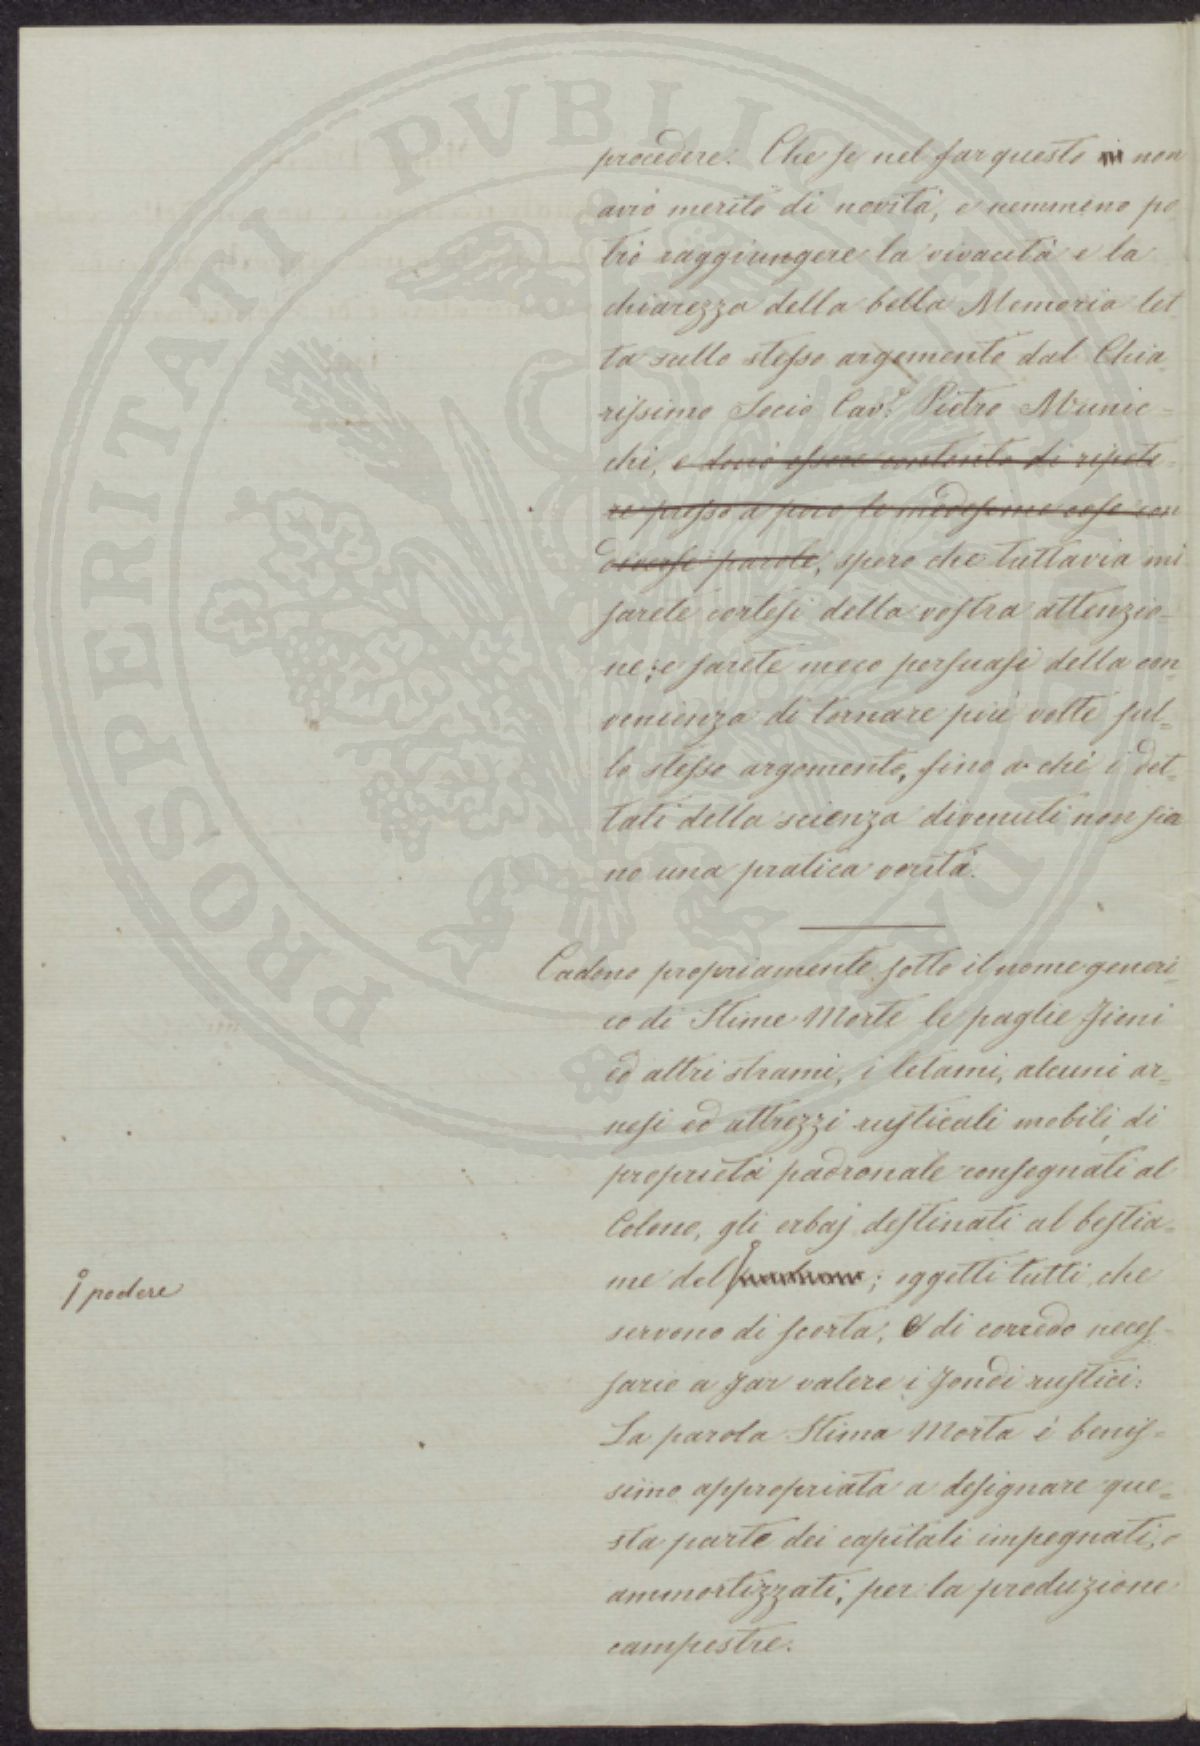 PROSPERITATI PVBLICAE
procedere. Che se nel far questo non
avrò merito di novità, e nemmeno po
trò raggiungere la vivacità e la
chiarezza della bella Memoria let=
ta sullo stesso argomento dal Chia
rissimo Socio Cav.e Pietro Munic=
chi, e dovrò essere contento di ripete=
re presso a poco le medesime cose con
diverse parole, spero che tuttavia mi
sarete cortesi della vostra attenzio=
ne; e sarete meco persuasi della con=
venienza di tornare più volte sul=
lo stesso argomento, fino a che i det=
tati della scienza divenuti non sia
no una pratica verità.
Cadono propriamente sotto il nome generi=
co di Stime Morte le paglie fieni
ed altri strami, i letami, alcuni ar=
nesi ed attrezzi rusticali mobili di
proprietà padronale consegnati al
Colono, gli erbaj destinati al bestia=
me del padrone; oggetti tutti che
podere
servono di scorta, e di corredo neces=
sario a far valere i fondi rustici.
La parola Stima Morta è benis=
simo appropriata a designare que=
sta parte dei capitali impegnati, e
ammortizzati, per la produzione
campestre.